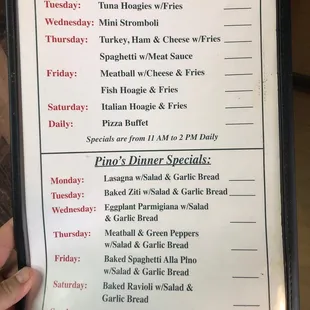 Tuesday: Tuna Hoagies w/Fries
Wednesday: Mini Stromboli
Thursday: Turkey, Ham & Cheese w/Fries
Spaghetti w/Meat Sauce
Friday: Meatball w/Cheese & Fries
Fish Hoagie & Fries
Saturday: Italian Hoagie & Fries
Daily: Pizza Buffet
Specials are from 11 AM to 2 PM Daily
Pino's Dinner Specials:
Monday: Lasagna w/Salad & Garlic Bread
Tuesday: Baked Ziti w/Salad & Garlic Bread
Wednesday: Eggplant Parmigiana w/Salad
& Garlic Bread
Thursday: Meatball & Green Peppers
w/Salad & Garlic Bread
Friday: Baked Spaghetti Alla Pino
w/Salad & Garlic Bread
Saturday: Baked Ravioli w/Salad &
Garlic Bread